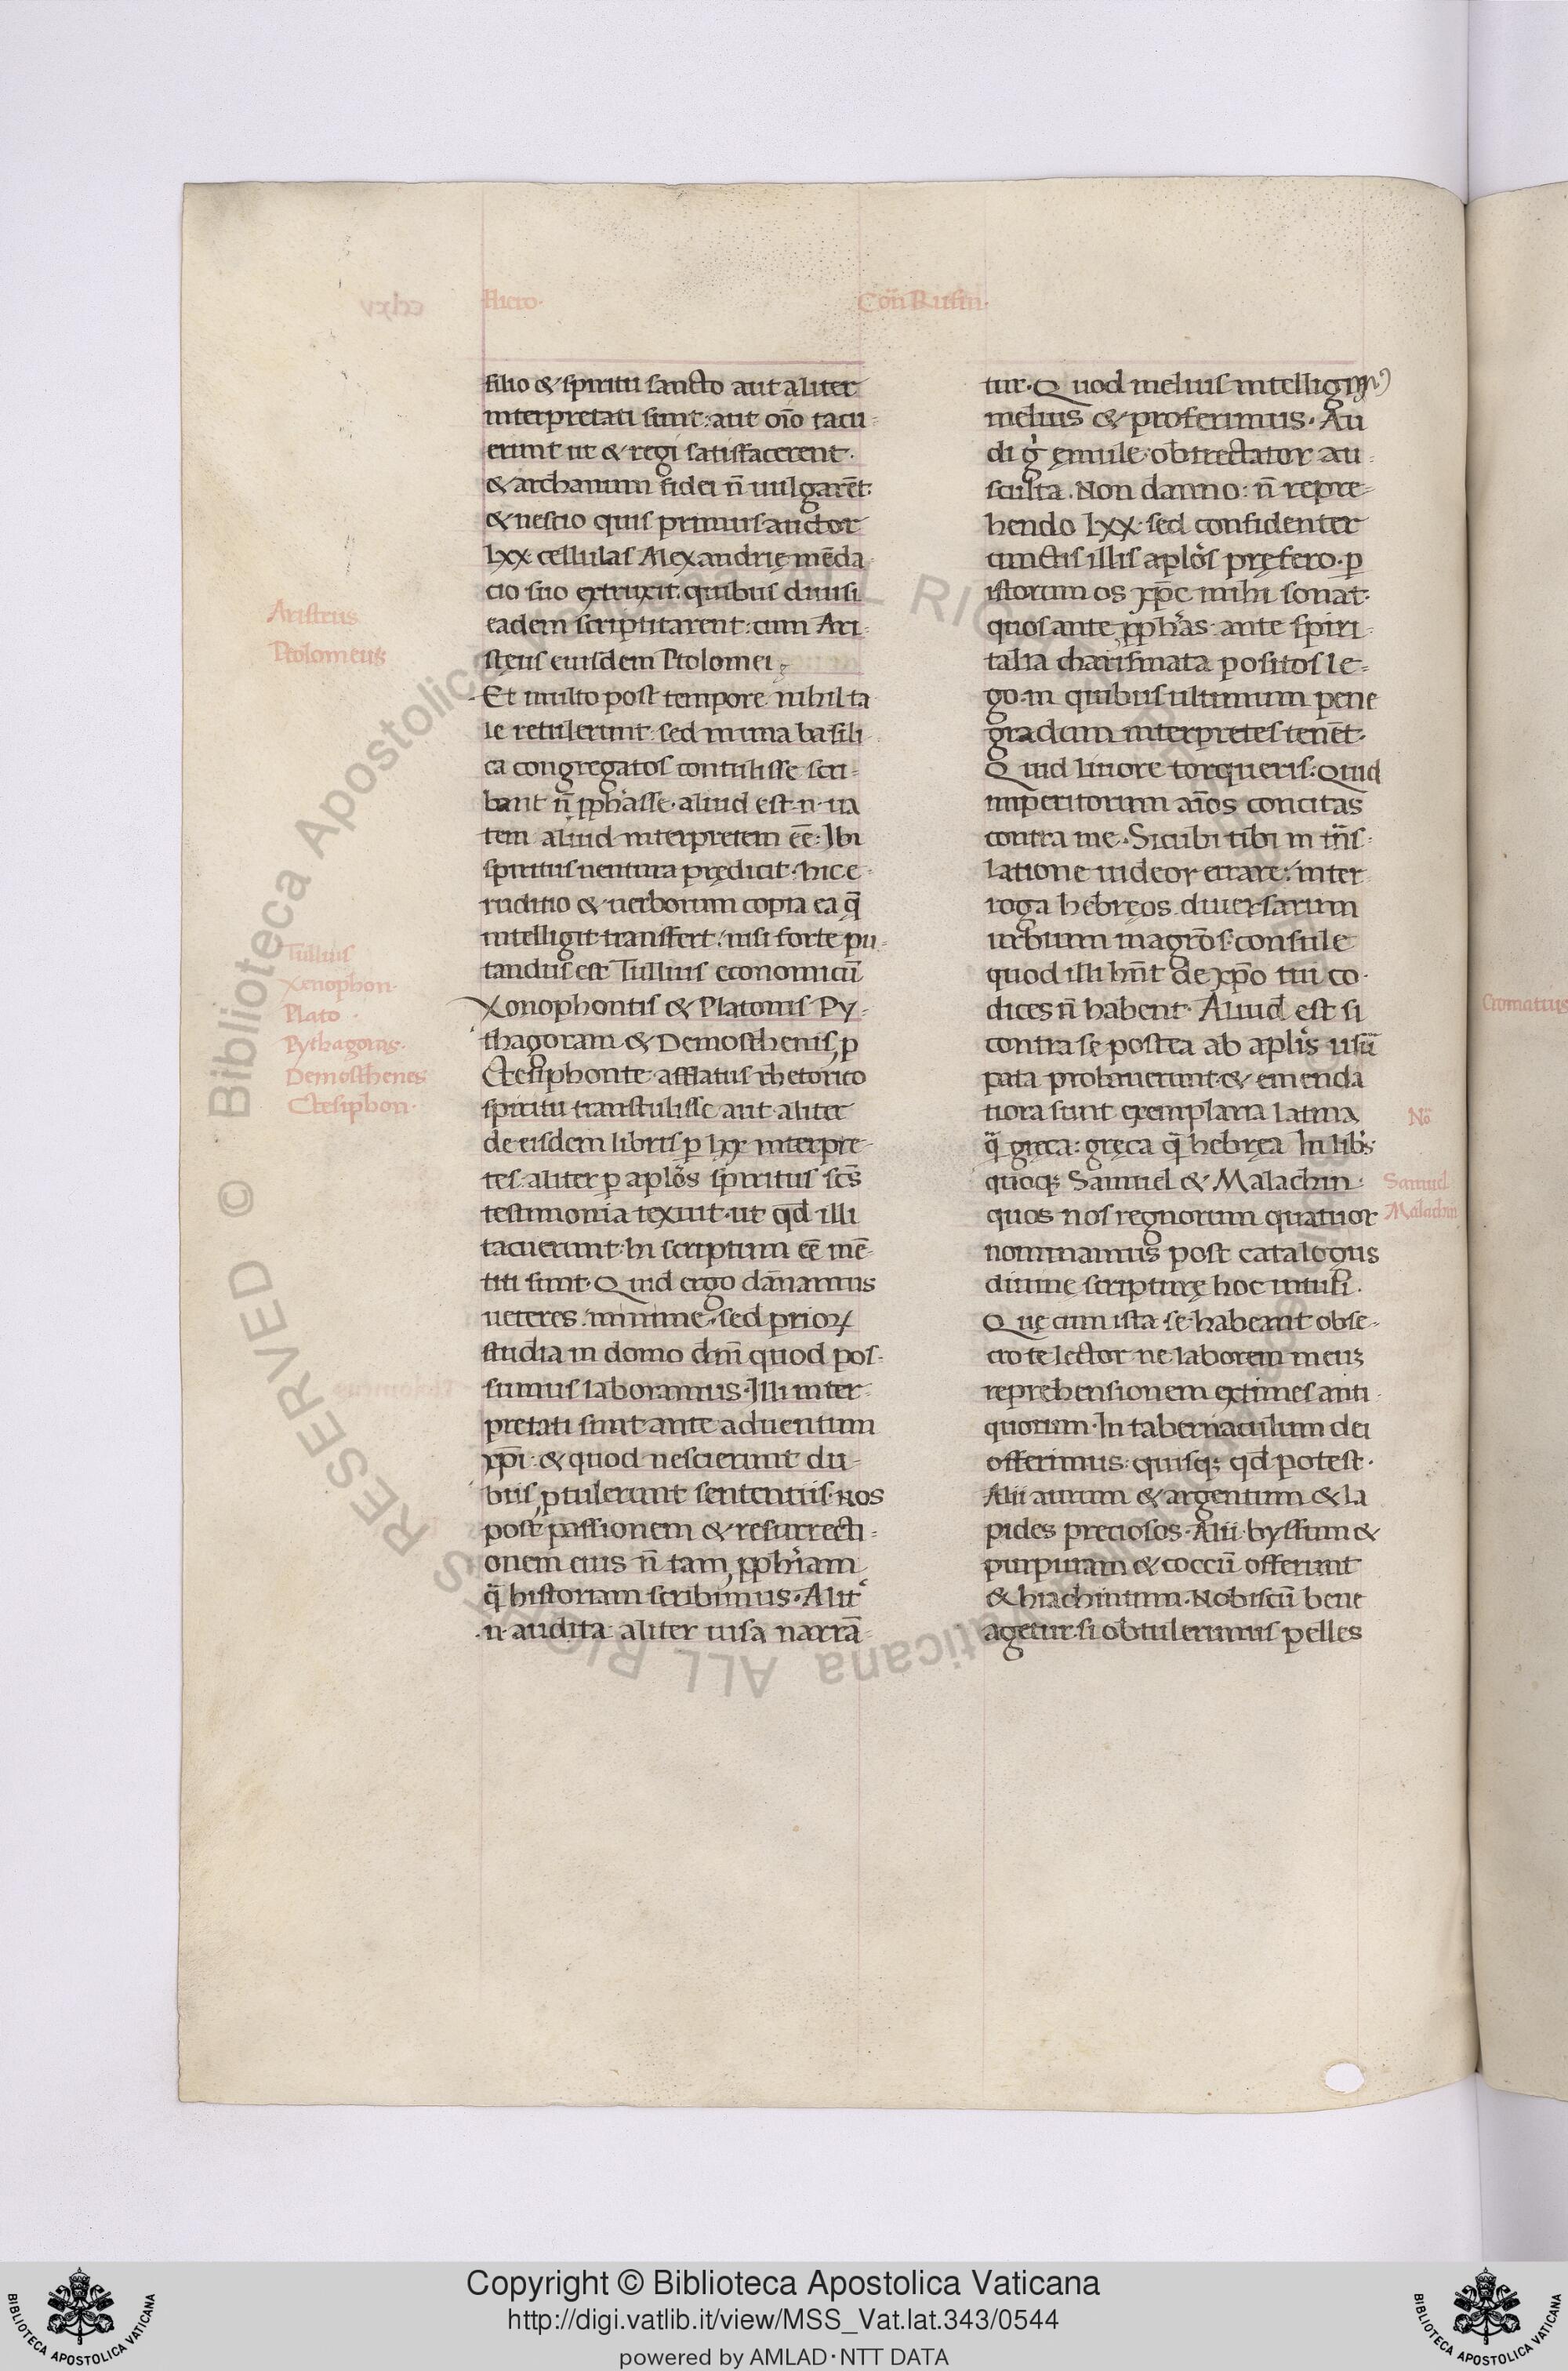 Hiero· Con̄ Rufin·
filio & spiritu sancto aut aliter
interpretati sunt: aut oīo tacu-
erunt ut & regi satisfacerent·
& archanum fidei n̄ uulgarēt:
& nescio quis primus auctor
lxx cellulas Alexandrię mēda
cio suo extruxit: quibus diuisi
eadem scriptitarent: cum Ari-
stęus eiusdem Ptolomei
Et multo post tempore nihil ta
le retulerunt: sed in una basili-
ca congregatos contulisse scri-
bant n̄ ꝓph̄asse· aliud est·n·ua
tem aliud interpretem eē: Ibi
spiritus uentura prędicit· hic e-
ruditio & uerborum copia ea q̄
intelligit transfert: nisi forte pu-
tandus est Tullius economicū
Xonophontis & Platonis Py-
thagoram & Demosthenis, ꝓ
Ctesiphonte afflatus rhetorico
spiritu transtulisse aut aliter
de eisdem libris ꝑ lxx interpre-
tes: aliter ꝑ aplōs spiritus scs̄
testimonia texuit· ut qd̄ illi
tacuerunt: hi scriptum eē mē-
titi sunt· Quid ergo dānamus
ueteres: minime· sed prioꝝ
studia in domo dn̄i quod pos-
sumus laboramus· Illi inter-
pretati sunt ante aduentum
xp̄i: & quod nescierunt du-
biis ꝓtulerunt sententiis· Nos
post passionem & resurrecti-
onem eius n̄ tam ꝓph̄iam
q̄ historiam scribimus· Alit̉
·n· audita aliter uisa narrā-
tur· Quod melius intelligim᾽
melius & proferimus· Au
di g̉ ęmule· obtrectator au-
sculta. Non damno: n̄ repre-
hendo lxx· sed confidenter
cunctis illis aplōs pręfero· ꝑ
istorum os xp̄c mihi sonat·
quos ante ꝓph̄as· ante spiri-
talia charismata positos le-
go· in quibus ultimum pene
gradum interpretes tenēt·
Quid liuore torqueris· Quid
imperitorum aīos concitas
contra me· Sicubi tibi in tn̄s-
latione uideor errare: inter-
roga hebręos· diuersarum
urbium magrōs· consule
quod illi hn̄t de xp̄o tui co-
dices n̄ habent· Aliud est si
contra se postea ab aplīs usū
pata probauerunt· & emenda
tiora sunt exemplaria latina
q̄ gręca: gręca q̄ hebręa In libs̉
quoqꝫ Samuel & Malachin·
quos nos regnorum quatuor
nominamus post catalogus
diuinę scripturę hoc intuli·
Quę cum ista se habeant obse-
cro te lector ne laborem meuꝫ
reprehensionem extimes anti-
quorum· In tabernaculum dei
offerimus: quisqꝫ qd̄ potest·
Alii aurum & argentum & la
pides preciosos· Alii byssum &
purpuram & coccū offerunt
& hiachintum· Nobiscū bene
agetur· si obtulerimus pelles
Aristeus
Ptolomeus
Tullius
Xenophon·
Plato
Pythagoras·
Demosthenes
Ctesiphon·
Nō
Samuel
Malachin
Cromatius
© Biblioteca Apostolica Vaticana ALL RIGHTS RESERVED
Copyright © Biblioteca Apostolica Vaticana
http://digi.vatlib.it/view/MSS_Vat.lat.343/0544
powered by AMLAD·NTT DATA
BIBLIOTECA APOSTOLICA VATICANA
BIBLIOTECA APOSTOLICA VATICANA